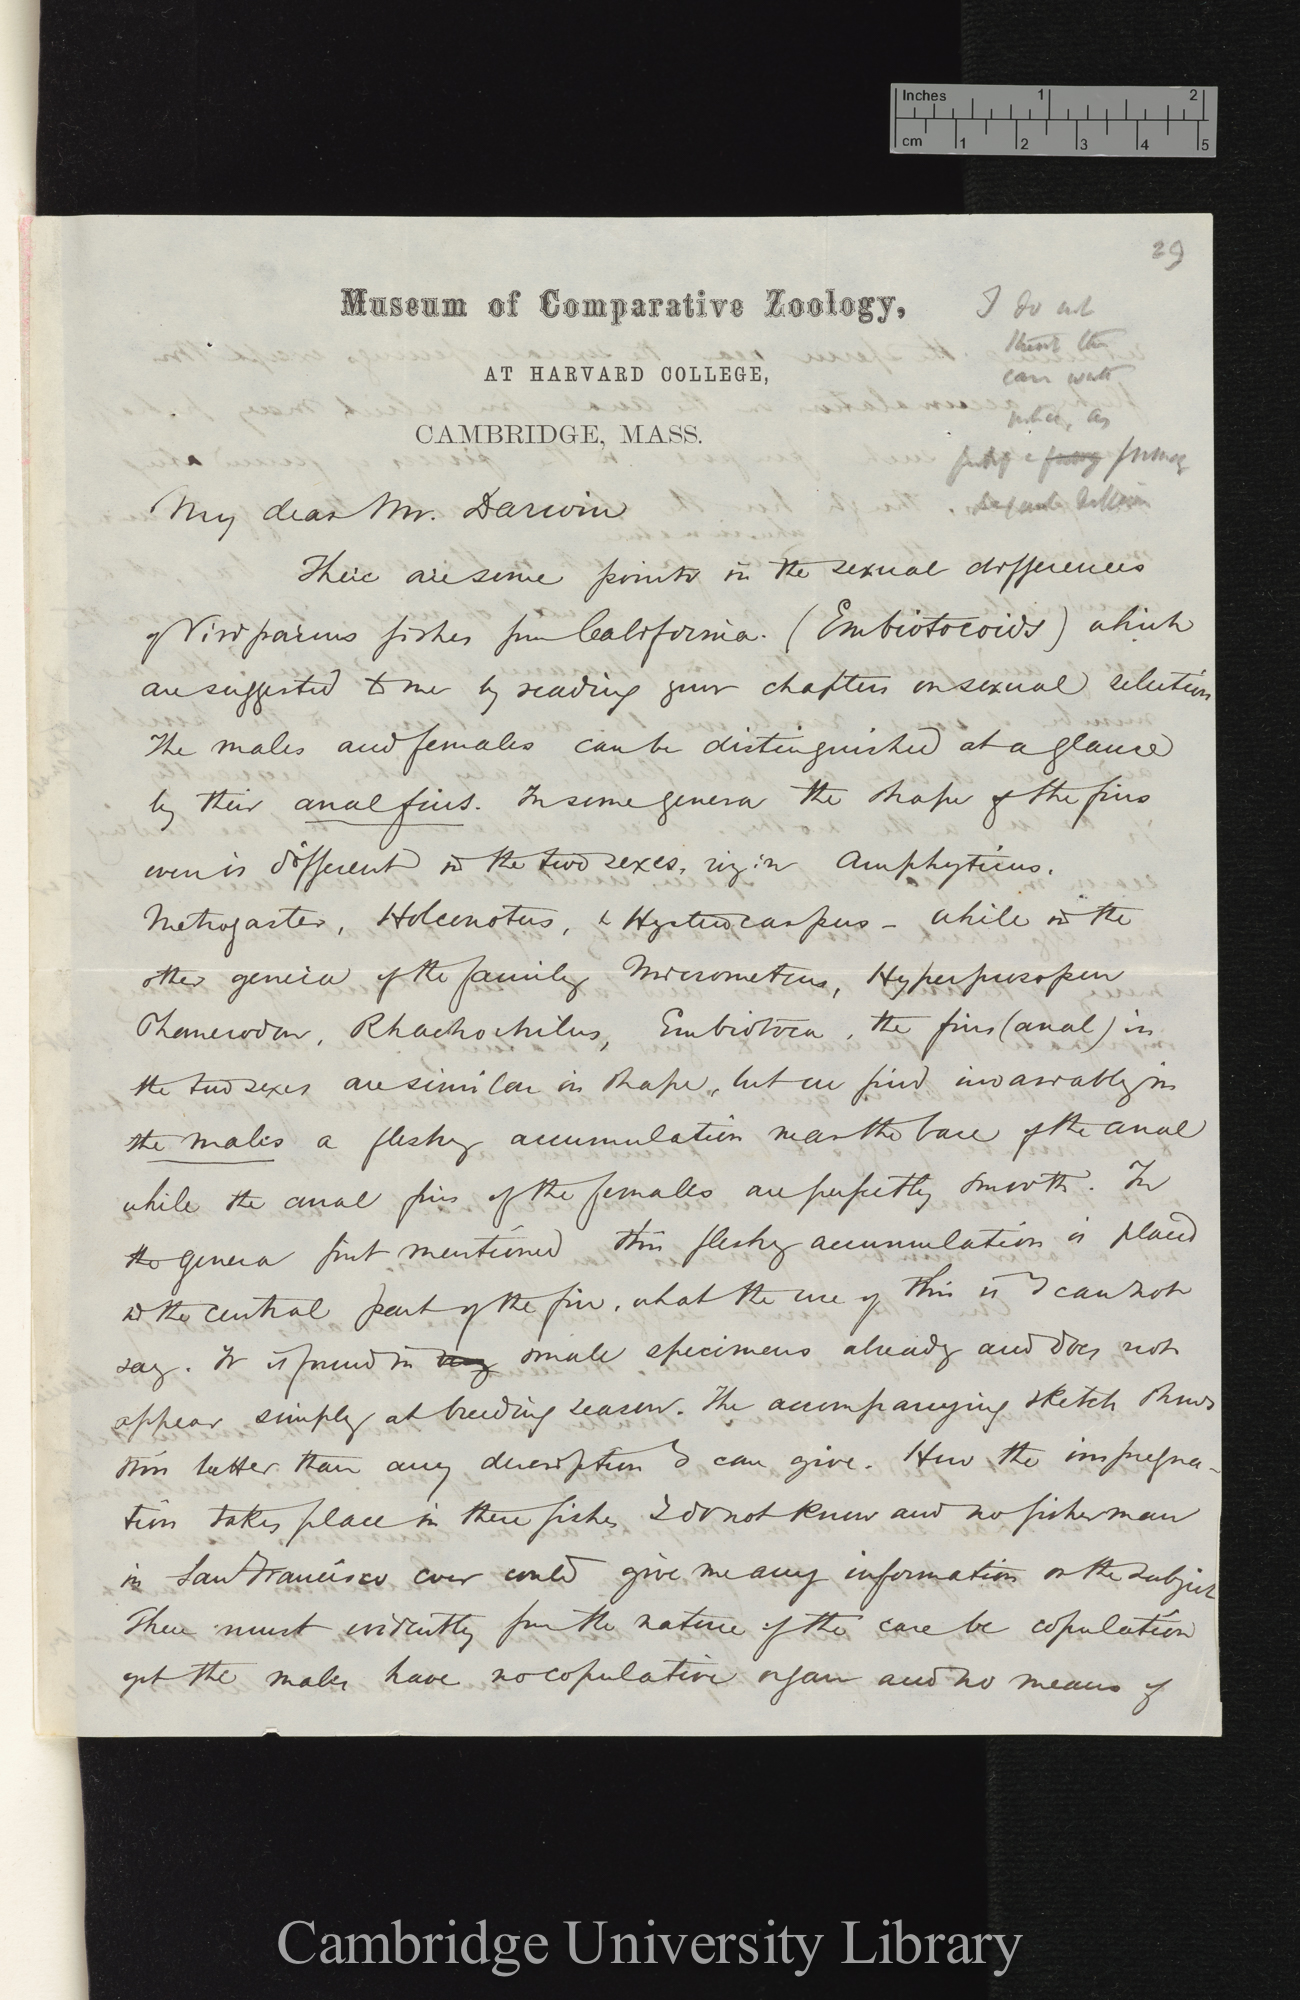 Inches 1 2
cm 1 2 3 4 5
29
Museum of Comparative Zoology,
AT HARVARD COLLEGE,
CAMBRIDGE, MASS.
I do not
think this
can
as
My dear Mr. Darwin
There are some points in the sexual differences
of Viviparous fishes from California. (Embiotocoids) which
are suggested to me by reading your chapters on sexual selection
The males and females can be distinguished at a glance
by their anal fins. In some genera the shape of the fins
even is different in the two sexes, viz: in Amphysticus.
Metrogaster, Holconotus, & Hysterocarpus - while in the
other genera of the family Micrometrus, Hyperprosopon
Phanerodon, Rhachochilus, Embiotoca, the fins (anal) in
the two sexes are similar in shape, but we find invariably in
the males a fleshy accumulation near the base of the anal
while the anal fins of the females are perfectly smooth. In
the genera first mentioned this fleshy accumulation is placed
in the central part of the fin, what the use of this is I can not
say. It is found in very small specimens already and does not
appear simply at breeding season. The accompanying sketch shows
this better than any description I can give. How the impregna-
tion takes place in these fishes I do not know and no fisherman
in San Francisco ever could give me any information on the subject
There must evidently from the nature of the case be copulation
yet the males have no copulative organ and no means of
Cambridge University Library